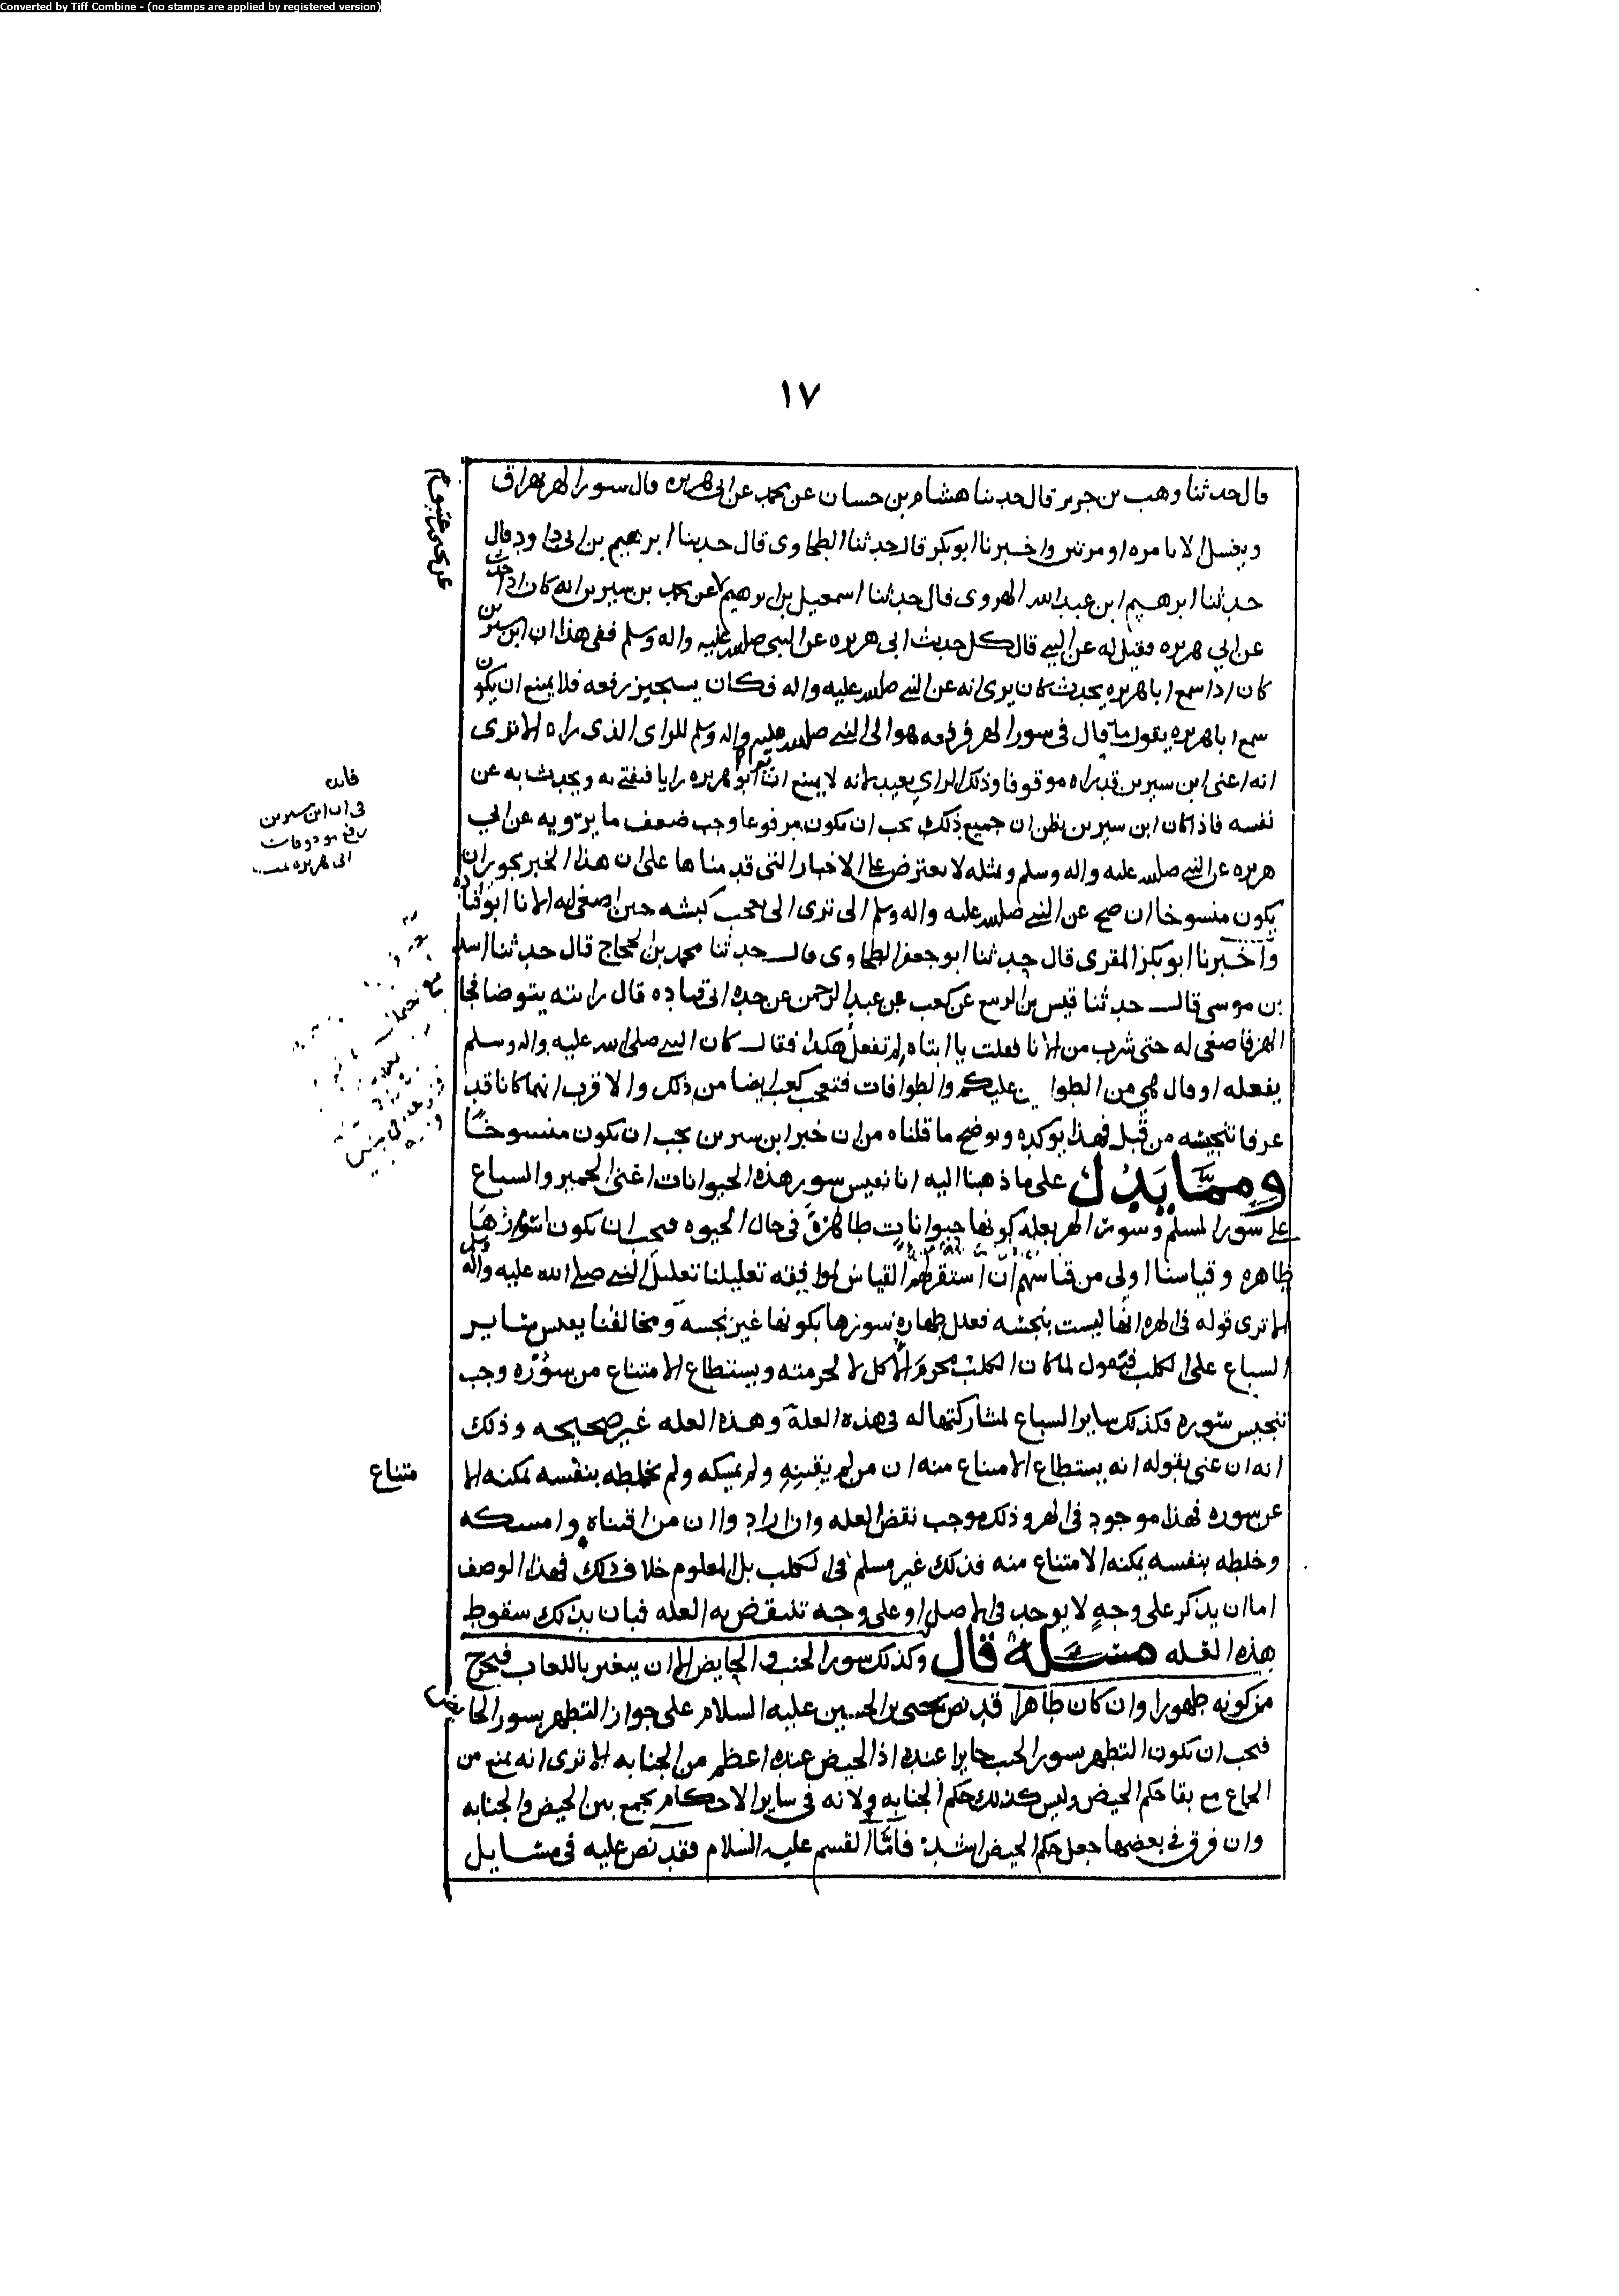 Converted by Tiff Combine - (no stamps are applied by registered version)
١٧
قال حدثنا وهب بن جرير قال حدثنا هشام بن حسان عن محمد عن ابي هريره قال سور الهر يهراق
ويغسل الانا مره او مرتين واخبرنا ابو بكر قال حدثنا الطحاوي قال حدثنا ابرهيم بن ابي داود قال
حدثنا ابرهيم ابن عبد الله الهروي قال حدثنا اسمعيل بن ابرهيم عن محمد بن سيرين انه كان اذا حدث
عن يحيى بن عتيق
عن ابي هريره فقيل له عن النبي قال كل حديث ابي هريره عن النبي صلى الله عليه واله وسلم ففي هذا ان ابن سيرين
كان اذا سمع ابا هريره يحدث كان يرى انه عن النبي صلى الله عليه واله فكان يستجيز رفعه فلا يمنع ان يكون
سمع ابا هريره يقول ما قال في سور الهر فرفعه هو الى النبي صلى الله عليه واله وسلم للراي الذي راه الا ترى
انه اعني ابن سيرين قد راه موقوفا وذلك الراي بعيد لانه لا يمنع ان ابو هريره رايا فيفتي به ويحدث به عن
نفسه فاذا كان ابن سيرين يظن ان جميع ذلك يجب ان يكون مرفوعا وجب ضعف ما يرويه عن ابي
هريره عن النبي صلى الله عليه واله وسلم ومثله لا يعترض على الاخبار التي قدمناها على ان هذا الخبر يجوز ان
في ان ابن سيرين
ابي هريره
يكون منسوخا ان صح عن النبي صلى الله عليه واله وسلم الى ترى الى تعجب كبشه حين اصغى له الانا ابو قتاده
واخبرنا ابو بكر المقري قال حدثنا ابو جعفر الطحاوي قال حدثنا محمد بن الحجاج قال حدثنا اسد
بن موسى قال حدثنا قيس بن الربيع عن كعب بن عبد الرحمن عن جده ابي قتاده قال رايته يتوضا فجا
الهر فاصغى له حتى شرب من الانا فقلت يا ابتاه لم تفعل هكذا فقال كان النبي صلى الله عليه واله وسلم
يفعله او قال هي من الطوافين عليكم والطوافات فتعجب كعب ايضا من ذلك والاقرب انهما كانا قد
عرفا تنجيسه من قبل فهذا يوكد ويوضح ما قلناه من ان خبر ابن سيرين يجب ان يكون منسوخا
ومما يدل على ما ذهبنا اليه انا نقيس سور هذه الحيوانات اعني الحمير والسباع
على سور المسلم وسور الهر بعله كونها حيوانات طاهرة في حال الحيوه فيجب ان يكون اسوارها
طاهره وقياسنا اولى من قياسهم ان استقر لهم القياس لموافقه تعليلنا تعليل النبي صلى الله عليه واله وسلم
الا ترى قوله في الهره انها ليست بنجسه فعلل طهاره سورها بكونها غير نجسه ومخالفنا يقيس ساير
السباع على الكلب فيقول لما كان الكلب محرم الاكل لا لحرمته ويستطاع الامتناع من سوره وجب
تنجيس سوره فكذلك ساير السباع لمشاركتها له في هذه العلة وهذه العله غير صحيحه وذلك
انه ان عنى بقوله انه يستطاع الامتناع منه ان من لم يقتنه ولم يمسكه ولم يخلطه بنفسه يمكنه الا
متناع
عن سوره فهذا موجود في الهر وذلك موجب نقض العله وان اراد وا ان من اقتناه وامسكه
وخلطه بنفسه يمكنه الامتناع منه فذلك غير مسلم في الكلب بل المعلوم خلاف ذلك فهذا الوصف
اما ان يذكر على وجه لا يوجد في الاصل او على وجه تنتقض به العله فبان بذلك سقوط
هذه العله مسئلة قال وكذلك سور الجنب والحايض الا ان يتغير باللعاب فيخرج
من كونه طهورا وان كان طاهرا قد نص يحيى بن الحسين عليه السلام على جواز التطهر بسور الحايض
فيجب ان يكون التطهر بسور الجنب جايزا عنده اذ الحيض عنده اعظم من الجنابه الا ترى انه يمنع من
الجماع مع بقا حكم الحيض وليس كذلك حكم الجنابه ولانه في ساير الاحكام يجمع بين الحيض والجنابه
وان فرق في بعضها جعل حكم الحيض اشد فاما القسم عليه السلام فقد نص عليه في مسايل